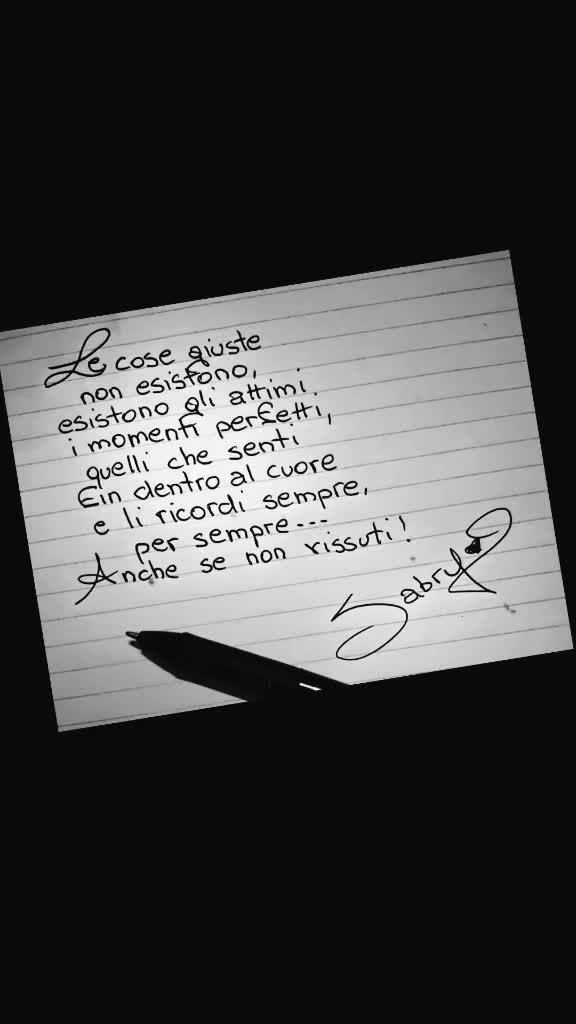 Le cose giuste
non esistono,
esistono gli attimi
i momenti perfetti,
quelli che senti
fin dentro al cuore
e li ricordi sempre,
per sempre...
Anche se non rissuti!
Sabry